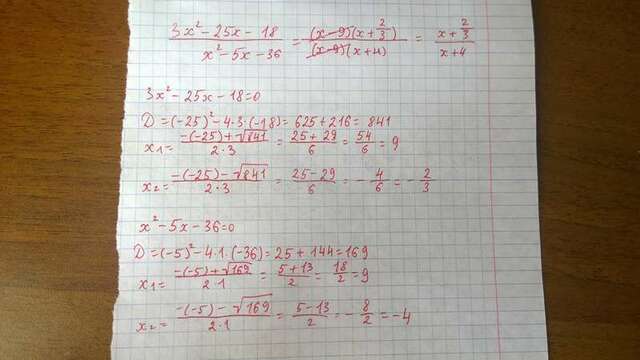 (3x² - 25x - 18)/(x² - 5x - 36) = ((x-9)(x+2/3))/((x-9)(x+4)) = (x+2/3)/(x+4)
3x² - 25x - 18 = 0
D = (-25)² - 4·3·(-18) = 625 + 216 = 841
x₁ = (-(-25)+√841)/(2·3) = (25+29)/6 = 54/6 = 9
x₂ = (-(-25)-√841)/(2·3) = (25-29)/6 = -4/6 = -2/3
x² - 5x - 36 = 0
D = (-5)² - 4·1·(-36) = 25 + 144 = 169
x₁ = (-(-5)+√169)/(2·1) = (5+13)/2 = 18/2 = 9
x₂ = (-(-5)-√169)/(2·1) = (5-13)/2 = -8/2 = -4